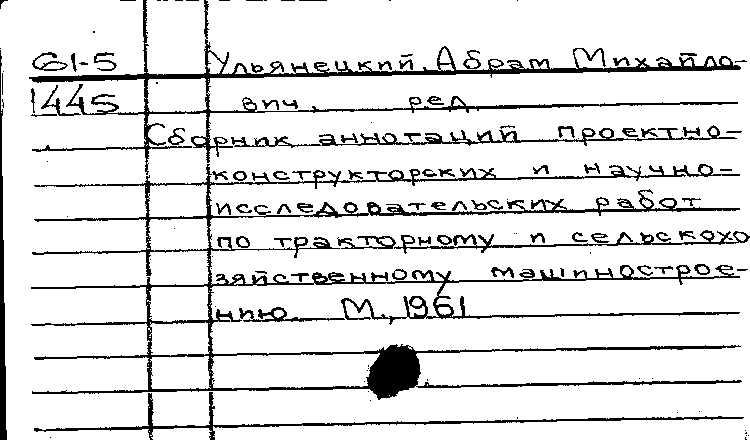 61-5 Ульянецкий, Абрам Михайло-
1445 вич, ред.
Сборник аннотаций проектно-
конструкторских и научно-
исследовательских работ
по тракторному и сельскохо
зяйственному машинострое-
нию. М., 1961